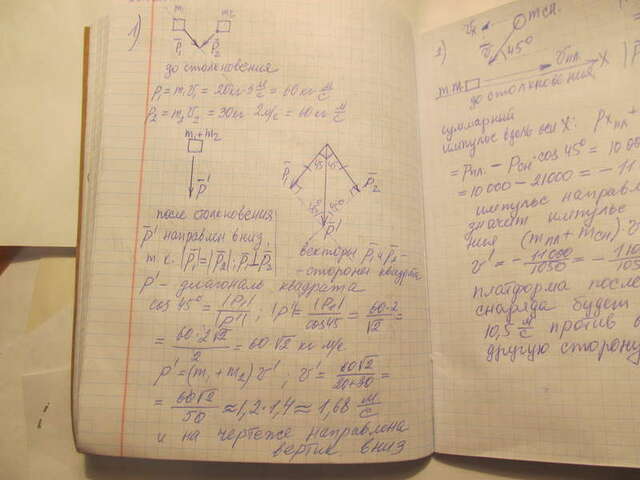 1)
m₁ m₂
P̄₁ P̄₂
до столкновения
P₁ = m₁v₁ = 20кг·3 м/с = 60 кг·м/с
P₂ = m₂v₂ = 30кг 2м/с = 60 кг м/с
m₁+m₂
P̄'
после столкновения
P̄₁ 45 45 P̄₂
45° 45°
P̄'
P̄' направлен вниз,
т. к. |P̄₁| = |P̄₂|; P̄₁ ⊥ P̄₂
векторы P̄₁ и P̄₂ –
- стороны квадрата
P' – диагональ квадрата
cos 45° = |P₁|/|P'|; |P'| = |P₁|/cos45 = 60·2/√2 =
= 60·2√2/2 = 60√2 кг м/с
P' = (m₁+m₂)v'; v' = 60√2/20+30 =
= 60√2/50 ≈ 1,2·1,4 ≈ 1,68 м/с
и на чертеже направлена
вертик вниз
2)
v̄x m сн.
v̄ 45°
m v̄пл X
до столкновения
суммарный
импульс вдоль оси X: Pxпл +
= Pпл. – Pсн·cos 45° = 10 00
= 10 000 – 21000 = – 11
импульс направл
значит импульс
ния (mпл + mсн)·v
v' = – 11000/1050 = – 110
платформа после
снаряда будет
10,5 м/с против
другую сторону